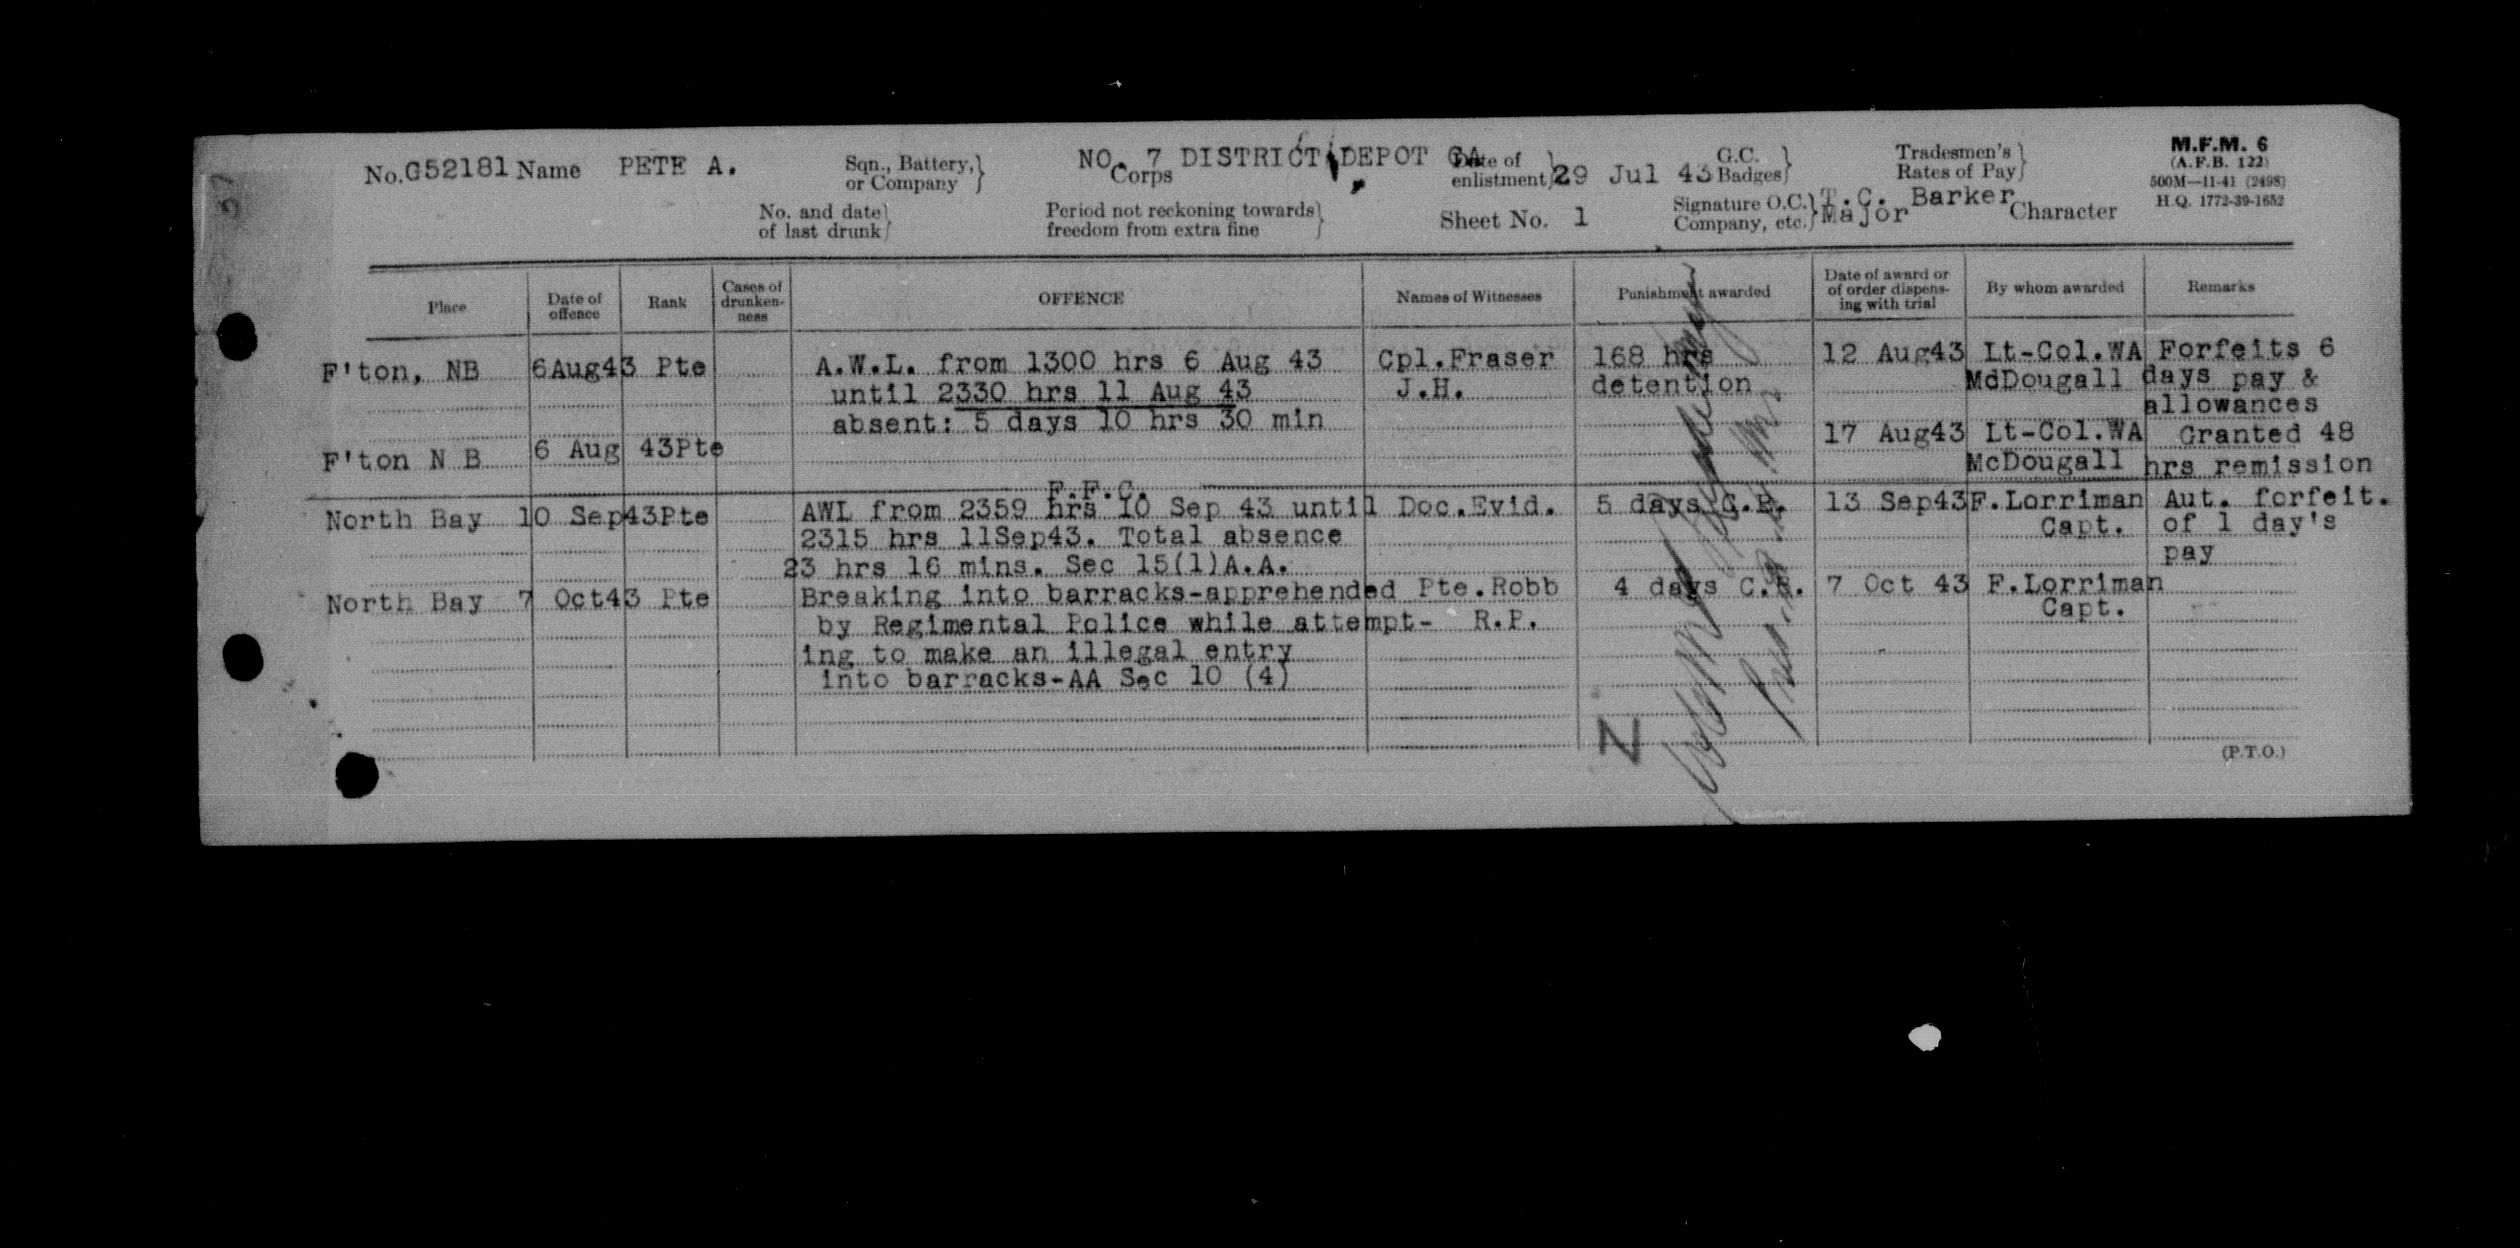 No. G52181 Name PETE A. Sqn., Battery, or Company NO. 7 DISTRICT DEPOT CA Corps Date of enlistment 29 Jul 43 G.C. Badges Tradesmen's Rates of Pay M.F.M. 6
(A.F.B. 122)
500M—11-41 (2498)
H.Q. 1772-39-1652
No. and date of last drunk Period not reckoning towards freedom from extra fine Sheet No. 1 Signature O.C. Company, etc. T.C. Barker Major Character
Place Date of offence Rank Cases of drunken-ness OFFENCE Names of Witnesses Punishment awarded Date of award or of order dispens-ing with trial By whom awarded Remarks
F'ton, NB 6Aug43 Pte A.W.L. from 1300 hrs 6 Aug 43 Cpl.Fraser 168 hrs 12 Aug43 Lt-Col.WA Forfeits 6
until 2330 hrs 11 Aug 43 J.H. detention McDougall days pay &
absent: 5 days 10 hrs 30 min allowances
F'ton N B 6 Aug 43Pte 17 Aug43 Lt-Col.WA Granted 48
McDougall hrs remission
F.F.C.
North Bay 10 Sep43Pte AWL from 2359 hrs 10 Sep 43 until Doc.Evid. 5 days C.B. 13 Sep43 F.Lorriman Aut. forfeit.
2315 hrs 11Sep43. Total absence Capt. of 1 day's
23 hrs 16 mins. Sec 15(1)A.A. pay
North Bay 7 Oct43 Pte Breaking into barracks-apprehended Pte.Robb 4 days C.B. 7 Oct 43 F.Lorriman
by Regimental Police while attempt- R.P. Capt.
ing to make an illegal entry
into barracks-AA Sec 10 (4)
N
(P.T.O.)